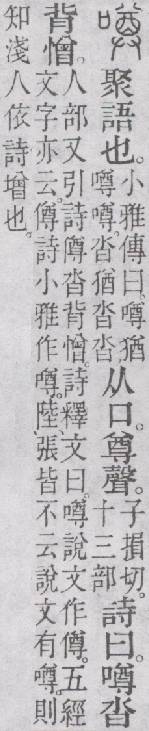 聚語也。
小雅傳曰。噂猶
噂噂。沓猶沓沓
从口。尊聲。
子損切。
十三部
詩曰。噂沓
背憎。
人部又引詩僔沓背憎。詩釋文曰。噂說文作僔。五經
文字亦云。僔詩小雅作噂。陸、張皆不云說文有噂。則
知淺人依詩增也。